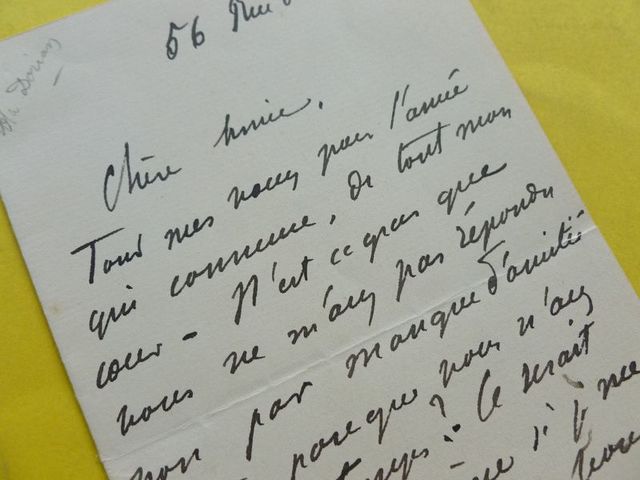 56 Rue
Mr Dorian
Chère Amie,
Tous mes vœux pour l'année
qui commence, de tout mon
cœur - N'est ce pas que
vous ne m'avez pas répondu
non par manque d'amitié
parceque vous n'avez
? Ce serait
si